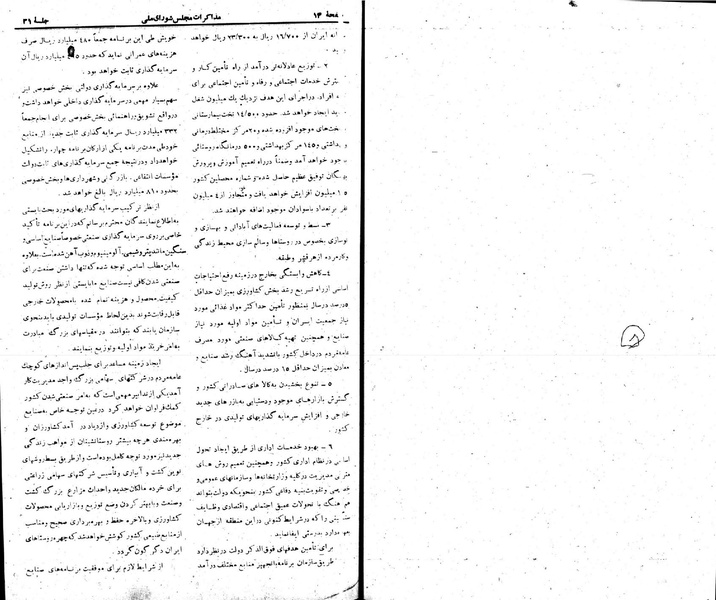 صفحهٔ ۱۳
مذاکرات مجلس شورای ملی
جلسهٔ ۳۱
انه ایران از ۱۶/۷۰۰ ریال به ۲۳/۳۰۰ ریال خواهد
۲ – توزیع عادلانه‌تر درآمد از راه تأمین کار و
گسترش خدمات اجتماعی و رفاه و تأمین اجتماعی برای
افراد. در اجرای این هدف نزدیک یک میلیون شغل
ید ایجاد خواهد شد. حدود ۱۴/۵۰۰ تخت بیمارستانی
تخت‌های موجود افزوده شده و ۲۰ مرکز مختلط درمانی
و ۱۴۵ مرکز بهداشتی و ۵۰۰ درمانگاه روستائی
جود خواهد آمد وضمناً در راه تعمیم آموزش و پرورش
توفیق عظیم حاصل شده و شماره محصلین کشور
۱۵ میلیون افزایش خواهد یافت و متجاوز از ۴ میلیون
نفر بر تعداد باسوادان موجود اضافه خواهند شد.
۳– بسط و توسعه فعالیت‌های آبادانی و بهسازی و
نوسازی بخصوص در روستاها و سالم سازی محیط زندگی
و کار مردم از هر قشر و طبقه.
۴– کاهش وابستگی بخارج در زمینه رفع احتیاجات
اساسی از راه تسریع رشد بخش کشاورزی بمیزان حداقل
۵ درصد در سال بمنظور تأمین حداکثر مواد غذائی مورد
نیاز جمعیت ایران و تأمین مواد اولیه مورد نیاز
صنایع و همچنین تهیه کالاهای صنعتی مورد مصرف
عامه مردم در داخل کشور با تشدید آهنگ رشد صنایع و
معادن بمیزان حداقل ۱۵ درصد در سال.
۵ – تنوع بخشیدن به کالا های صادراتی کشور و
گسترش بازارهای موجود و دستیابی به بازارهای جدید
خارجی و افزایش سرمایه گذاریهای تولیدی در خارج
کشور.
۶ – بهبود خدمات اداری از طریق ایجاد تحول
اساسی در نظام اداری کشور و همچنین تعمیم روش های
مترقی مدیریت در کلیه وزارتخانه‌ها و سازمانهای عمومی و
خصوصی و تقویت بنیه دفاعی کشور بنحویکه دولت بتواند
هم آهنگ با تحولات عمیق اجتماعی و اقتصادی وظایف
را که در شرایط کنونی در این منطقه از جهان
دارد بدرستی ایفا نماید.
برای تأمین هدفهای فوق‌الذکر دولت در نظر دارد
از طریق سازمان برنامه با تجهیز منابع مختلف درآمد
خویش طی این برنامه جمعاً ۴۸۰ میلیارد ریال صرف
هزینه‌های عمرانی نماید که حدود میلیارد ریال آن
سرمایه گذاری ثابت خواهد بود.
علاوه بر سرمایه گذاری دولتی بخش خصوصی نیز
سهم بسیار مهمی در سرمایه گذاری داخلی خواهد داشت و
در واقع تشویق و راهنمائی بخش خصوصی برای انجام جمعاً
۳۳۲ میلیارد ریال سرمایه گذاری ثابت جدید از منابع
خود طی مدت برنامه یکی از ارکان برنامه چهارم را تشکیل
خواهد داد و در نتیجه جمع سرمایه گذاری های ثابت دولت
مؤسسات انتفاعی، بازرگانی و شهرداری‌ها و بخش خصوصی
بحدود ۸۱۰ میلیارد ریال بالغ خواهد شد.
از نظر ترکیب سرمایه گذاریهای مورد بحث بایستی
به اطلاع نمایندگان محترم برسانم که در این برنامه تأکید
خاصی بر روی سرمایه گذاری صنعتی خصوصاً صنایع اساسی و
سنگین مانند پتروشیمی، آلومینیوم و ذوب آهن شده است. بعلاوه
به این مطلب اساسی توجه شده که تنها داشتن صنعت برای
صنعتی شدن کافی نیست صنایع ما بایستی از نظر روش تولید
کیفیت محصول و هزینه تمام شده با محصولات خارجی
قابل رقابت شوند بدین لحاظ مؤسسات تولیدی باید بنحوی
سازمان یابند که بتوانند در مقیاسهای بزرگ مبادرت
به امر خرید مواد اولیه و توزیع بنمایند.
ایجاد زمینه مساعد برای جلب پس اندازهای کوچک
عامه مردم در شرکتهای سهامی بزرگ واجد مدیریت کار
آمد یکی از تدابیر مهمی است که به امر صنعتی شدن کشور
کمک فراوان خواهد کرد در عین توجیه خاص به صنایع
موضوع توسعه کشاورزی و ازدیاد درآمد کشاورزان و
بهره‌مندی هرچه بیشتر روستانشینان از مواهب زندگی
جدید نیز مورد توجه کامل بوده است و از طریق بسط روشهای
نوین کشت و آبیاری و تأسیس شرکتهای سهامی زراعی
برای خرده مالکان جدید و احداث مزارع بزرگ کشت
وصنعت و با بهتر کردن وضع توزیع و بازاریابی محصولات
کشاورزی و بالاخره حفظ و بهره‌برداری صحیح و مناسب
از منابع طبیعی کشور کوشش خواهد شد که چهره روستاهای
ایران دگرگون گردد.
از شرایط لازم برای موفقیت برنامه‌های صنایع